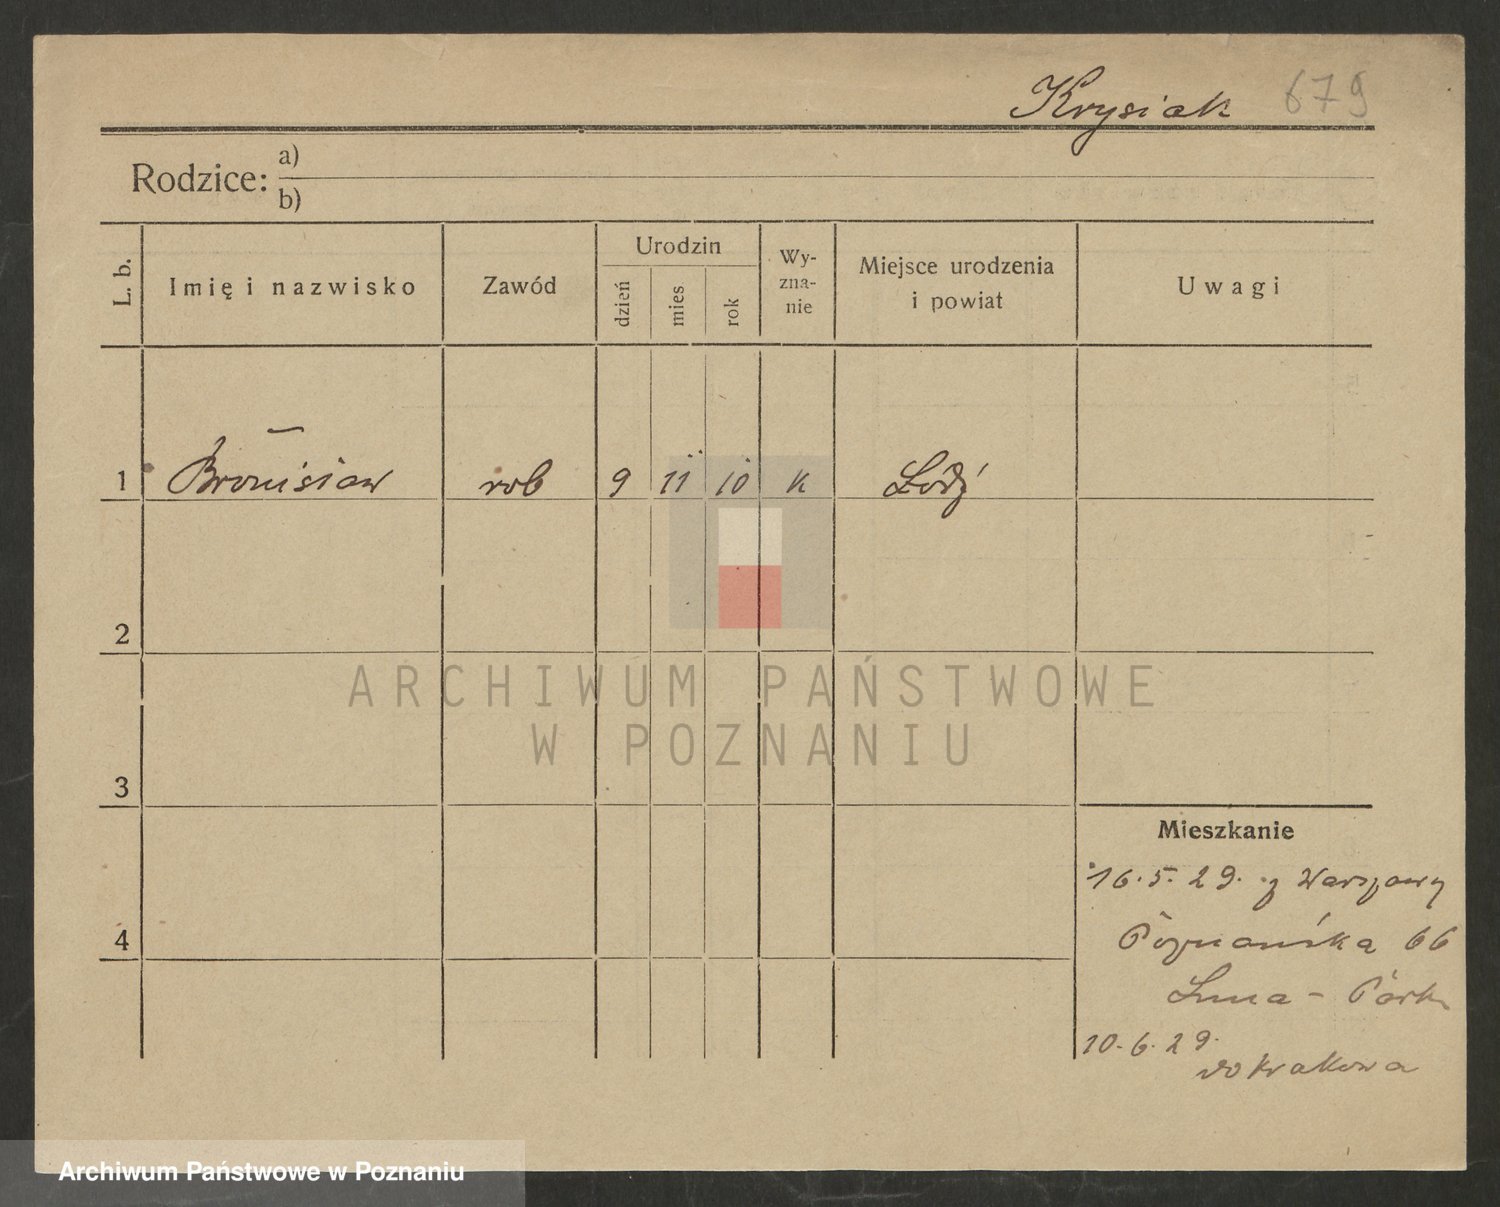 Krysiak 679
Rodzice: a)
b)
L. b.
Imię i nazwisko
Zawód
Urodzin
dzień
mies
rok
Wy-
zna-
nie
Miejsce urodzenia
i powiat
Uwagi
1 Bronisław rob 9 11 10 k Łódź
2
ARCHIWUM PAŃSTWOWE
W POZNANIU
3
Mieszkanie
16.5.29. z Warszawy
4
Poznańska 66
Luna - Park
10.6.29.
do Krakowa
Archiwum Państwowe w Poznaniu